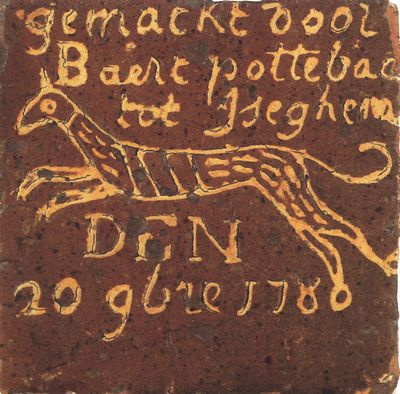 gemackt door
Baert pottebac
tot Jseghem
DEN
20 9bre 1780